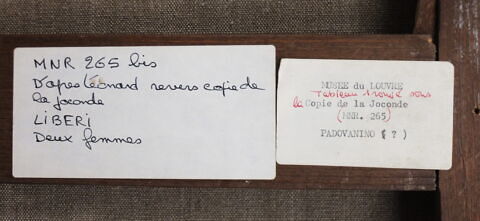 MNR 265 bis
D'après Léonard revers copie de
la Joconde
LiBERi
Deux femmes
MUSEE du LOUVRE
Tableau trouvé sous
la Copie de la Joconde
(MNR. 265)
PADOVANINO ( ? )